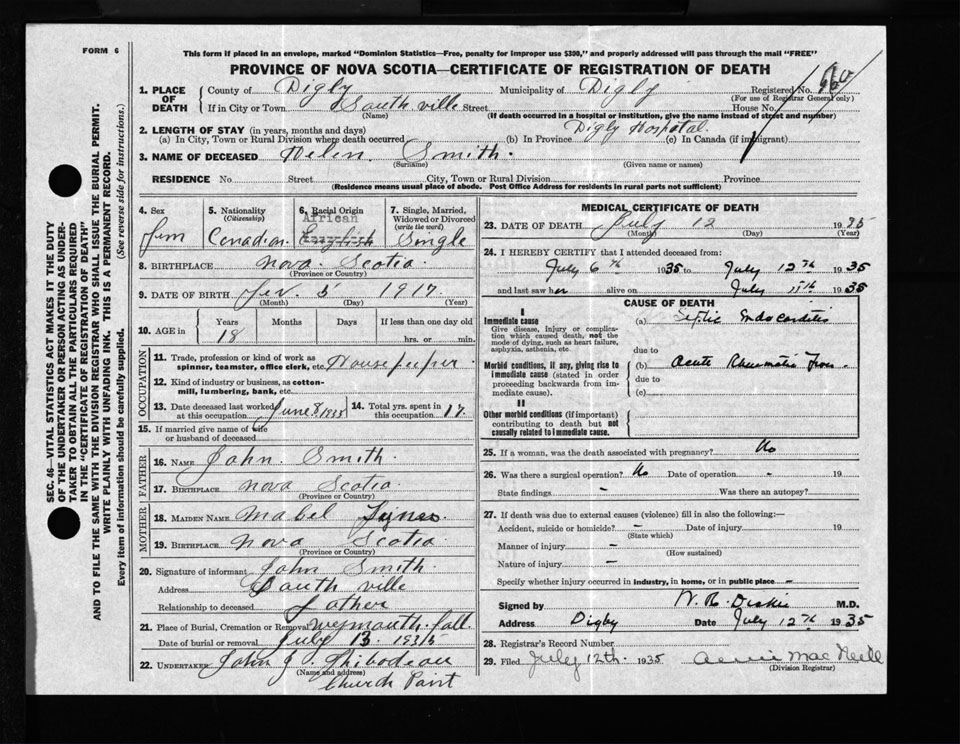 FORM 6
This form if placed in an envelope, marked "Dominion Statistics—Free, penalty for improper use $300," and properly addressed will pass through the mail "FREE"
PROVINCE OF NOVA SCOTIA—CERTIFICATE OF REGISTRATION OF DEATH
1. PLACE OF DEATH
County of Digby Municipality of Digby Registered No.
(For use of Registrar General only)
If in City or Town Southville Street House No.
(Name) (If death occurred in a hospital or institution, give the name instead of street and number)
Digby Hospital.
2. LENGTH OF STAY (in years, months and days)
(a) In City, Town or Rural Division where death occurred (b) In Province (c) In Canada (if immigrant)
3. NAME OF DECEASED Helen Smith.
(Surname) (Given name or names)
RESIDENCE No. Street City, Town or Rural Division Province
(Residence means usual place of abode. Post Office Address for residents in rural parts not sufficient)
4. Sex Fem
5. Nationality (Citizenship) Canadian
6. Racial Origin African English
7. Single, Married, Widowed or Divorced (write the word) Single
8. BIRTHPLACE Nova Scotia
(Province or Country)
9. DATE OF BIRTH 5 1917
(Month) (Day) (Year)
10. AGE in Years Months Days If less than one day old
18 hrs. or min.
OCCUPATION
11. Trade, profession or kind of work as spinner, teamster, office clerk, etc. Housekeeper
12. Kind of industry or business, as cotton-mill, lumbering, bank, etc.
13. Date deceased last worked at this occupation June 8, 1935 14. Total yrs. spent in this occupation 17.
15. If married give name of wife or husband of deceased
FATHER
16. NAME John Smith.
17. BIRTHPLACE Nova Scotia
(Province or Country)
MOTHER
18. MAIDEN NAME Mabel
19. BIRTHPLACE Nova Scotia
(Province or Country)
20. Signature of informant John Smith.
Address Southville
Relationship to deceased Father
21. Place of Burial, Cremation or Removal Weymouth fall
Date of burial or removal July 13 1935
22. UNDERTAKER John J. Thibodeau
(Name and address)
Church Point
MEDICAL CERTIFICATE OF DEATH
23. DATE OF DEATH July 12 1935
(Month) (Day) (Year)
24. I HEREBY CERTIFY that I attended deceased from:
July 6th 1935 to July 12th 1935
and last saw her alive on July 11th 1935
CAUSE OF DEATH
I
Immediate cause
Give disease, injury or complication which caused death, not the mode of dying, such as heart failure, asphyxia, asthenia, etc.
(a) Septic Endocarditis
due to
Morbid conditions, if any, giving rise to immediate cause (stated in order proceeding backwards from immediate cause).
(b) Acute Rheumatic Fever
due to
(c)
II
Other morbid conditions (if important) contributing to death but not causally related to immediate cause.
25. If a woman, was the death associated with pregnancy? No
26. Was there a surgical operation? No Date of operation - 19
State findings - Was there an autopsy?
27. If death was due to external causes (violence) fill in also the following:—
Accident, suicide or homicide? - Date of injury 19
(State which)
Manner of injury -
(How sustained)
Nature of injury -
Specify whether injury occurred in industry, in home, or in public place -
Signed by W. R. Dickie M.D.
Address Digby Date July 12th 1935
28. Registrar's Record Number
29. Filed July 12th. 1935 Annie MacNeill
(Division Registrar)
SEC. 46—VITAL STATISTICS ACT MAKES IT THE DUTY OF THE UNDERTAKER OR PERSON ACTING AS UNDERTAKER TO OBTAIN ALL THE PARTICULARS REQUIRED IN THE "CERTIFICATE OF REGISTRATION OF DEATH"
AND TO FILE THE SAME WITH THE DIVISION REGISTRAR WHO SHALL ISSUE THE BURIAL PERMIT.
WRITE PLAINLY WITH UNFADING INK. THIS IS A PERMANENT RECORD.
Every item of information should be carefully supplied. (See reverse side for instructions.)